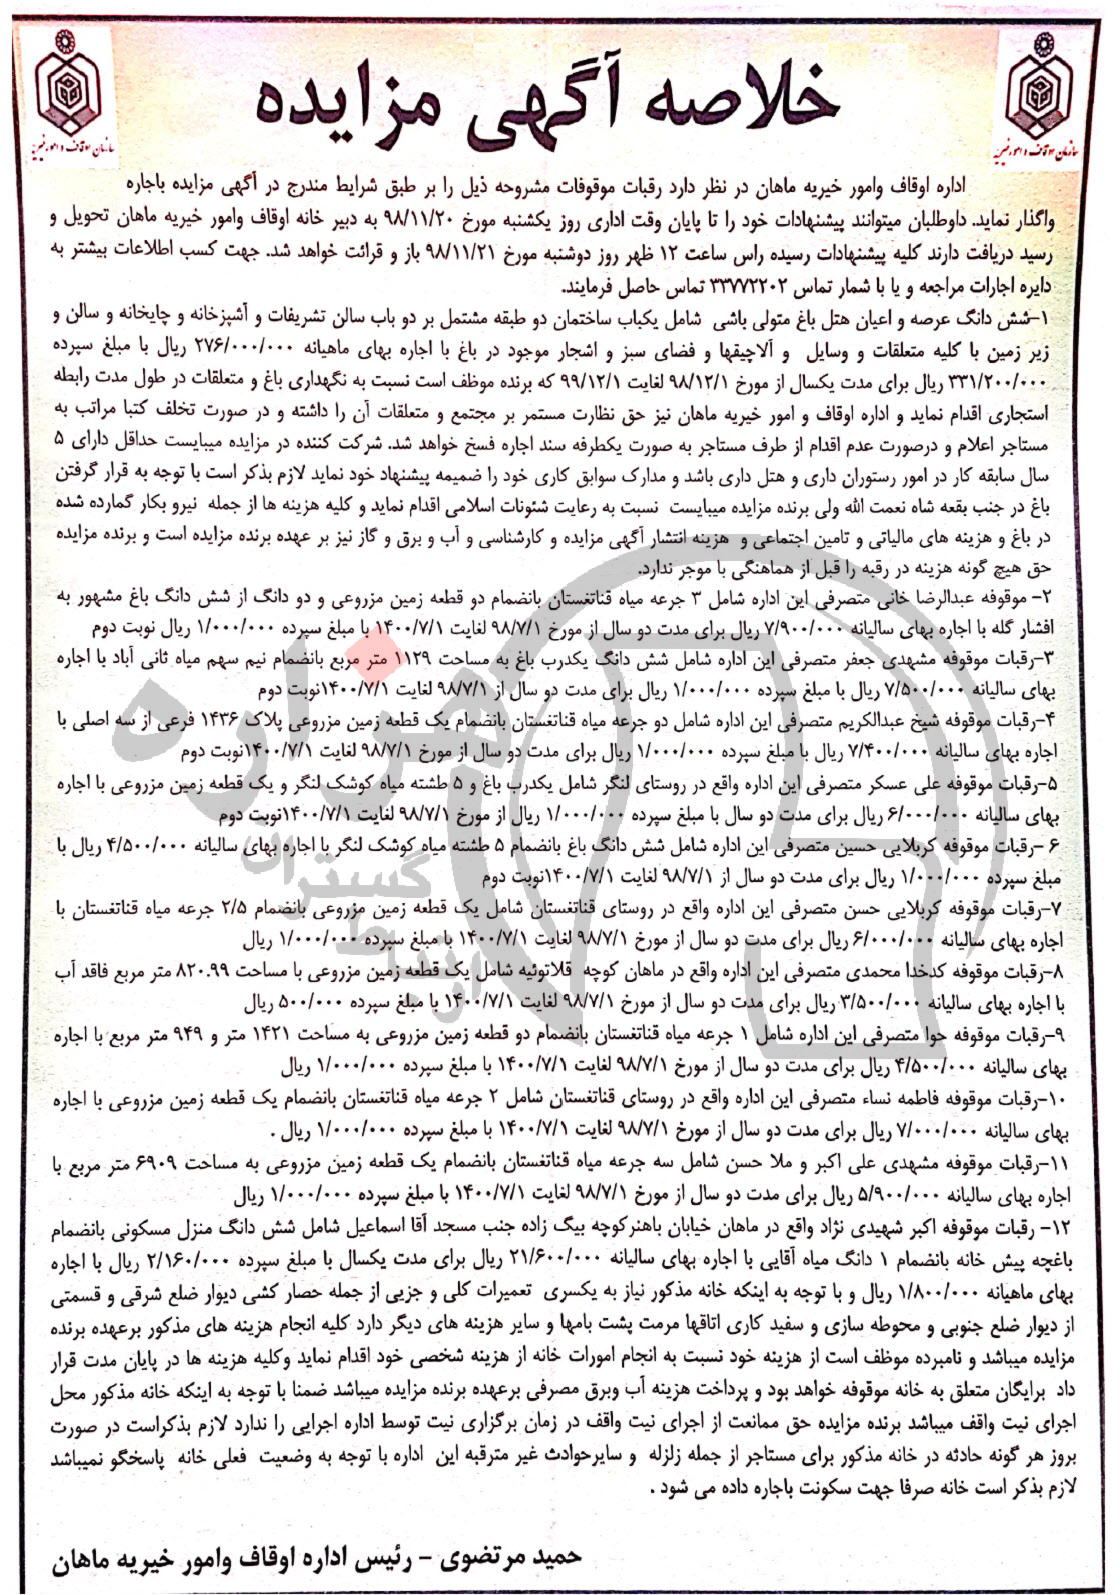 خلاصه آگهی مزایده
سازمان اوقاف و امور خیریه
سازمان اوقاف و امور خیریه
اداره اوقاف وامور خیریه ماهان در نظر دارد رقبات موقوفات مشروحه ذیل را بر طبق شرایط مندرج در آگهی مزایده باجاره
واگذار نماید. داوطلبان میتوانند پیشنهادات خود را تا پایان وقت اداری روز یکشنبه مورخ ۹۸/۱۱/۲۰ به دبیر خانه اوقاف وامور خیریه ماهان تحویل و
رسید دریافت دارند کلیه پیشنهادات رسیده راس ساعت ۱۲ ظهر روز دوشنبه مورخ ۹۸/۱۱/۲۱ باز و قرائت خواهد شد. جهت کسب اطلاعات بیشتر به
دایره اجارات مراجعه و یا با شمار تماس ۳۳۷۷۲۲۰۲ تماس حاصل فرمایند.
۱-شش دانگ عرصه و اعیان هتل باغ متولی باشی شامل یکباب ساختمان دو طبقه مشتمل بر دو باب سالن تشریفات و آشپزخانه و چایخانه و سالن و
زیر زمین با کلیه متعلقات و وسایل و آلاچیقها و فضای سبز و اشجار موجود در باغ با اجاره بهای ماهیانه ۲۷۶/۰۰۰/۰۰۰ ریال با مبلغ سپرده
۳۳۱/۲۰۰/۰۰۰ ریال برای مدت یکسال از مورخ ۹۸/۱۲/۱ لغایت ۹۹/۱۲/۱ که برنده موظف است نسبت به نگهداری باغ و متعلقات در طول مدت رابطه
استجاری اقدام نماید و اداره اوقاف و امور خیریه ماهان نیز حق نظارت مستمر بر مجتمع و متعلقات آن را داشته و در صورت تخلف کتبا مراتب به
مستاجر اعلام و درصورت عدم اقدام از طرف مستاجر به صورت یکطرفه سند اجاره فسخ خواهد شد. شرکت کننده در مزایده میبایست حداقل دارای ۵
سال سابقه کار در امور رستوران داری و هتل داری باشد و مدارک سوابق کاری خود را ضمیمه پیشنهاد خود نماید لازم بذکر است با توجه به قرار گرفتن
باغ در جنب بقعه شاه نعمت الله ولی برنده مزایده میبایست نسبت به رعایت شئونات اسلامی اقدام نماید و کلیه هزینه ها از جمله نیرو بکار گمارده شده
در باغ و هزینه های مالیاتی و تامین اجتماعی و هزینه انتشار آگهی مزایده و کارشناسی و آب و برق و گاز نیز بر عهده برنده مزایده است و برنده مزایده
حق هیچ گونه هزینه در رقبه را قبل از هماهنگی با موجر ندارد.
۲- موقوفه عبدالرضا خانی متصرفی این اداره شامل ۳ جرعه میاه قناتغستان بانضمام دو قطعه زمین مزروعی و دو دانگ از شش دانگ باغ مشهور به
افشار گله با اجاره بهای سالیانه ۷/۹۰۰/۰۰۰ ریال برای مدت دو سال از مورخ ۹۸/۷/۱ لغایت ۱۴۰۰/۷/۱ با مبلغ سپرده ۱/۰۰۰/۰۰۰ ریال نوبت دوم
۳-رقبات موقوفه مشهدی جعفر متصرفی این اداره شامل شش دانگ یکدرب باغ به مساحت ۱۱۲۹ متر مربع بانضمام نیم سهم میاه ثانی آباد با اجاره
بهای سالیانه ۷/۵۰۰/۰۰۰ ریال با مبلغ سپرده ۱/۰۰۰/۰۰۰ ریال برای مدت دو سال از ۹۸/۷/۱ لغایت ۱۴۰۰/۷/۱نوبت دوم
۴-رقبات موقوفه شیخ عبدالکریم متصرفی این اداره شامل دو جرعه میاه قناتغستان بانضمام یک قطعه زمین مزروعی پلاک ۱۴۳۶ فرعی از سه اصلی با
اجاره بهای سالیانه ۷/۴۰۰/۰۰۰ ریال با مبلغ سپرده ۱/۰۰۰/۰۰۰ ریال برای مدت دو سال از مورخ ۹۸/۷/۱ لغایت ۱۴۰۰/۷/۱نوبت دوم
۵-رقبات موقوفه علی عسکر متصرفی این اداره واقع در روستای لنگر شامل یکدرب باغ و ۵ طشته میاه کوشک لنگر و یک قطعه زمین مزروعی با اجاره
بهای سالیانه ۶/۰۰۰/۰۰۰ ریال برای مدت دو سال با مبلغ سپرده ۱/۰۰۰/۰۰۰ ریال از مورخ ۹۸/۷/۱ لغایت ۱۴۰۰/۷/۱نوبت دوم
۶ -رقبات موقوفه کربلایی حسین متصرفی این اداره شامل شش دانگ باغ بانضمام ۵ طشته میاه کوشک لنگر با اجاره بهای سالیانه ۴/۵۰۰/۰۰۰ ریال با
مبلغ سپرده ۱/۰۰۰/۰۰۰ ریال برای مدت دو سال از ۹۸/۷/۱ لغایت ۱۴۰۰/۷/۱نوبت دوم
۷-رقبات موقوفه کربلایی حسن متصرفی این اداره واقع در روستای قناتغستان شامل یک قطعه زمین مزروعی بانضمام ۲/۵ جرعه میاه قناتغستان با
اجاره بهای سالیانه ۶/۰۰۰/۰۰۰ ریال برای مدت دو سال از مورخ ۹۸/۷/۱ لغایت ۱۴۰۰/۷/۱ با مبلغ سپرده ۱/۰۰۰/۰۰۰ ریال
۸-رقبات موقوفه کدخدا محمدی متصرفی این اداره واقع در ماهان کوچه قلاتوئیه شامل یک قطعه زمین مزروعی با مساحت ۸۲۰.۹۹ متر مربع فاقد آب
با اجاره بهای سالیانه ۳/۵۰۰/۰۰۰ ریال برای مدت دو سال از مورخ ۹۸/۷/۱ لغایت ۱۴۰۰/۷/۱ با مبلغ سپرده ۵۰۰/۰۰۰ ریال
۹-رقبات موقوفه حوا متصرفی این اداره شامل ۱ جرعه میاه قناتغستان بانضمام دو قطعه زمین مزروعی به مساحت ۱۴۲۱ متر و ۹۴۹ متر مربع با اجاره
بهای سالیانه ۴/۵۰۰/۰۰۰ ریال برای مدت دو سال از مورخ ۹۸/۷/۱ لغایت ۱۴۰۰/۷/۱ با مبلغ سپرده ۱/۰۰۰/۰۰۰ ریال
۱۰-رقبات موقوفه فاطمه نساء متصرفی این اداره واقع در روستای قناتغستان شامل ۲ جرعه میاه قناتغستان بانضمام یک قطعه زمین مزروعی با اجاره
بهای سالیانه ۷/۰۰۰/۰۰۰ ریال برای مدت دو سال از مورخ ۹۸/۷/۱ لغایت ۱۴۰۰/۷/۱ با مبلغ سپرده ۱/۰۰۰/۰۰۰ ریال .
۱۱-رقبات موقوفه مشهدی علی اکبر و ملا حسن شامل سه جرعه میاه قناتغستان بانضمام یک قطعه زمین مزروعی به مساحت ۶۹۰۹ متر مربع با
اجاره بهای سالیانه ۵/۹۰۰/۰۰۰ ریال برای مدت دو سال از مورخ ۹۸/۷/۱ لغایت ۱۴۰۰/۷/۱ با مبلغ سپرده ۱/۰۰۰/۰۰۰ ریال
۱۲- رقبات موقوفه اکبر شهیدی نژاد واقع در ماهان خیابان باهنرکوچه بیگ زاده جنب مسجد آقا اسماعیل شامل شش دانگ منزل مسکونی بانضمام
باغچه پیش خانه بانضمام ۱ دانگ میاه آقایی با اجاره بهای سالیانه ۲۱/۶۰۰/۰۰۰ ریال برای مدت یکسال با مبلغ سپرده ۲/۱۶۰/۰۰۰ ریال با اجاره
بهای ماهیانه ۱/۸۰۰/۰۰۰ ریال و با توجه به اینکه خانه مذکور نیاز به یکسری تعمیرات کلی و جزیی از جمله حصار کشی دیوار ضلع شرقی و قسمتی
از دیوار ضلع جنوبی و محوطه سازی و سفید کاری اتاقها مرمت پشت بامها و سایر هزینه های دیگر دارد کلیه انجام هزینه های مذکور برعهده برنده
مزایده میباشد و نامبرده موظف است از هزینه خود نسبت به انجام امورات خانه از هزینه شخصی خود اقدام نماید وکلیه هزینه ها در پایان مدت قرار
داد برایگان متعلق به خانه موقوفه خواهد بود و پرداخت هزینه آب وبرق مصرفی برعهده برنده مزایده میباشد ضمنا با توجه به اینکه خانه مذکور محل
اجرای نیت واقف میباشد برنده مزایده حق ممانعت از اجرای نیت واقف در زمان برگزاری نیت توسط اداره اجرایی را ندارد لازم بذکراست در صورت
بروز هر گونه حادثه در خانه مذکور برای مستاجر از جمله زلزله و سایرحوادث غیر مترقبه این اداره با توجه به وضعیت فعلی خانه پاسخگو نمیباشد
لازم بذکر است خانه صرفا جهت سکونت باجاره داده می شود .
حمید مرتضوی – رئیس اداره اوقاف وامور خیریه ماهان